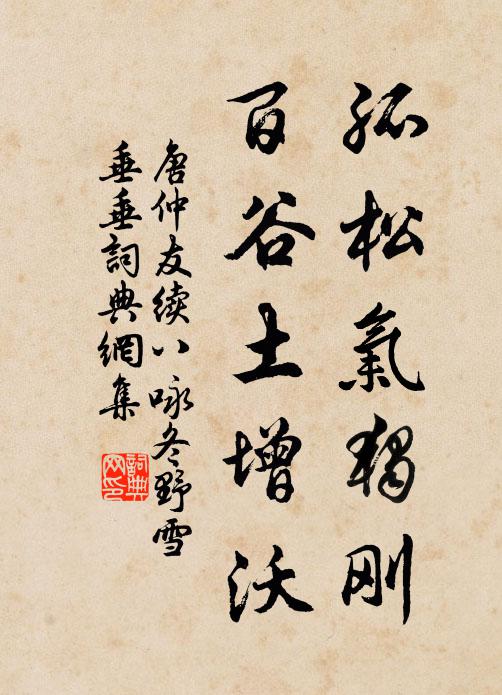 孤松氣獨刚
百谷土增沃
唐仲友續八咏冬野雪
垂垂詞典網集
詞典网印